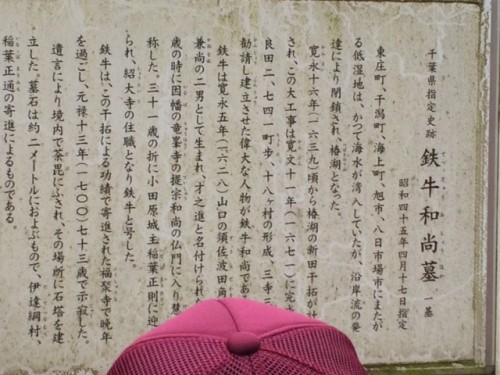 千葉県指定史跡 鉄牛和尚墓 一基
昭和四十五年四月十七日指定
東庄町、干潟町、海上町、旭市、八日市場市にまたが
る低湿地は、かつて海水が湾入していたが、沿岸流の発
達により閉鎖され、椿湖となった。
寛永十六年(一六三九)頃から椿湖の新田干拓が計
され、この大工事は寛文十一年(一六七一)に完
良田二、七四一町歩、十八ヶ村の形成、三寺三
勧請し建立させた偉大な人物が鉄牛和尚であ
鉄牛は寛永五年(一六二八)山口の須佐波田
兼尚の二男として生まれ、才之進と名付けられ
歳の時に因幡の竜峯寺の提宗和尚の仏門に入り慧
称した。三十一歳の折に小田原城主稲葉正則に迎
られ、紹太寺の住職となり鉄牛と号した。
鉄牛は、この干拓による功績で寄進された福聚寺で晩年
を過ごし、元禄十三年(一七〇〇)七十三歳で示寂した。
遺言により境内で荼毘にふされ、その場所に石塔を建
立した。墓石は約二メートルにおよぶもので、伊達綱村、
稲葉正通の寄進によるものである。